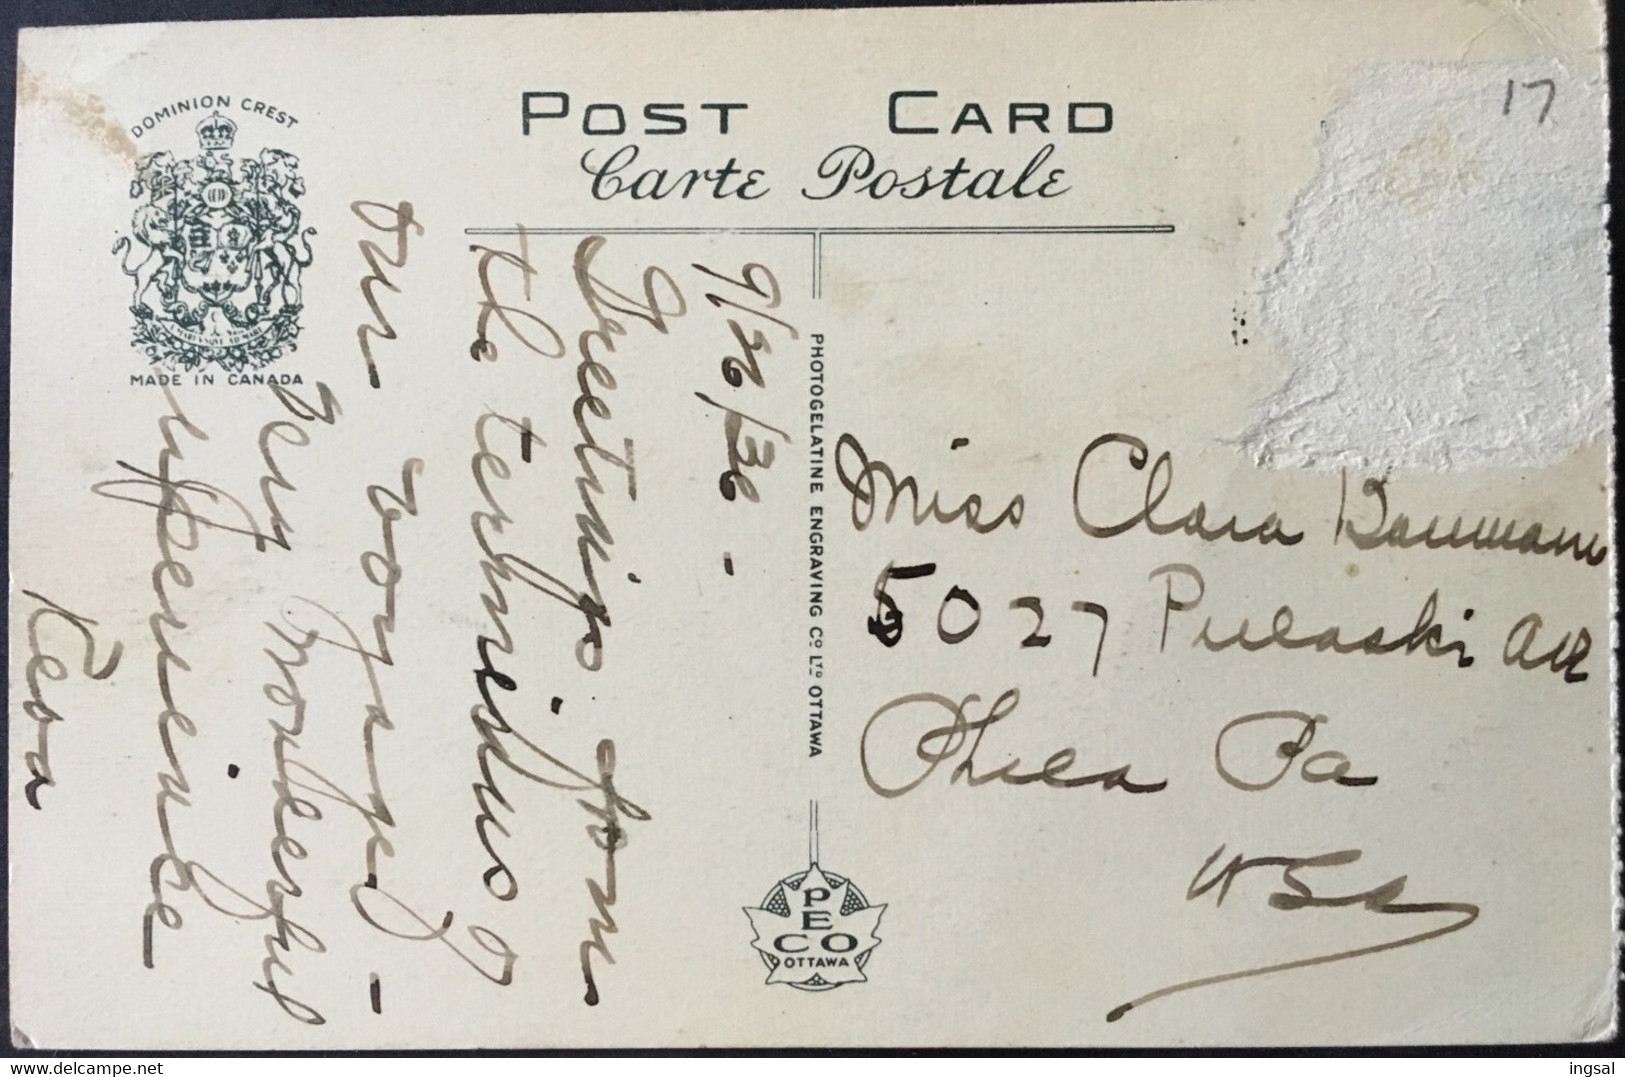 17
DOMINION CREST
MADE IN CANADA
POST CARD
Carte Postale
9/26/36 -
Greetings from
the terminus of
our voyage -
Very wonderful
experience
Reva
PHOTOGELATINE ENGRAVING CO LTD OTTAWA
PECO
OTTAWA
Miss Clara Baumann
5027 Pulaski Ave
Phila Pa
USA
delcampe.net
ingsal